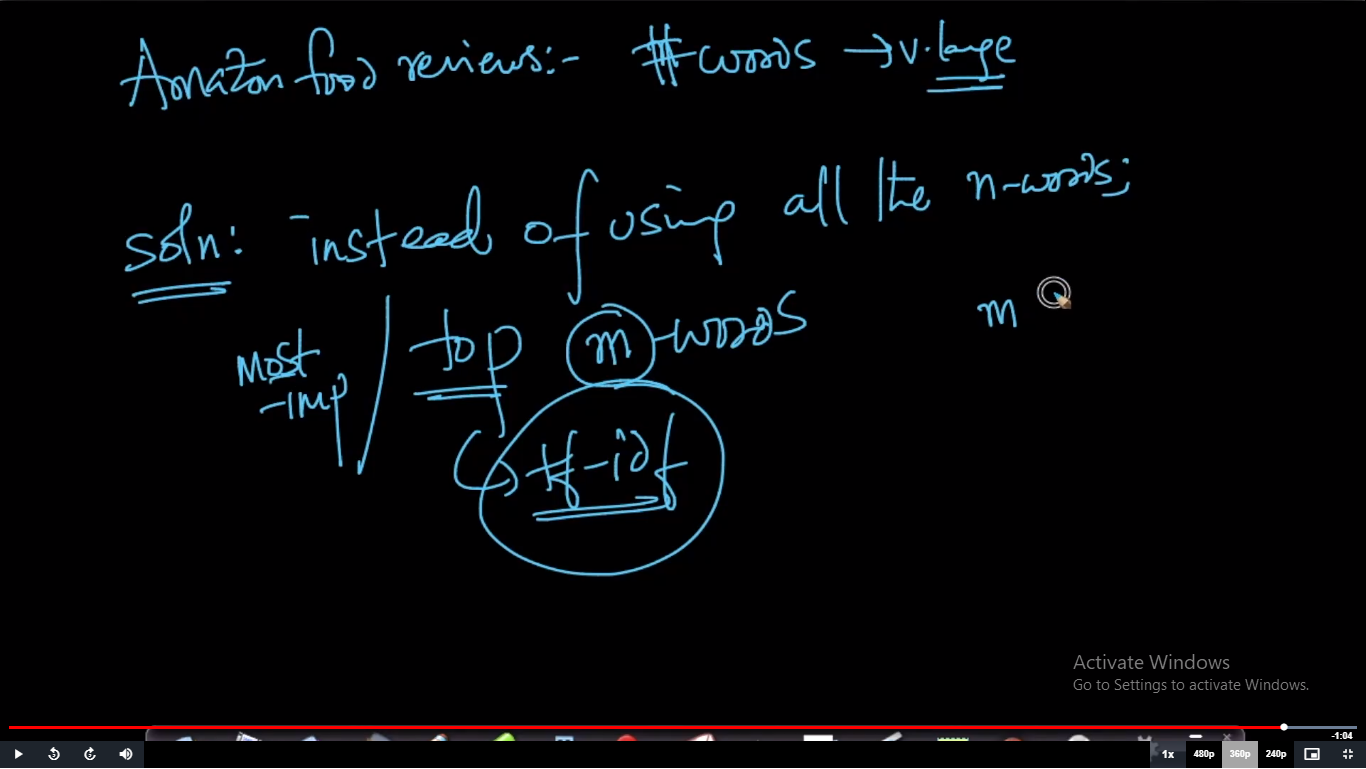 Amazon food reviews:- #words → v.large
soln: instead of using all the n-words;
most-imp / top m-words m
tf-idf
Activate Windows
Go to Settings to activate Windows.
-1:04
1x 480p 360p 240p